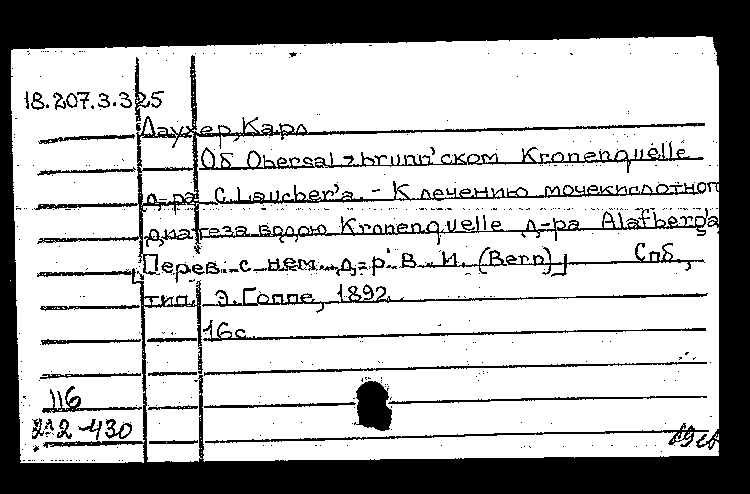 18.207.3.325
Лаухер, Карл
Об Obersalzbrunn'ском Kronenquelle
д-ра C. Laucher'а. - К лечению мочекислотного
диатеза водою Kronenquelle д-ра Alafberg'а
[Перев. с нем. д-р В. И. (Вегп)] Спб.,
тип. Э. Гоппе, 1892.
16с
116
212-430